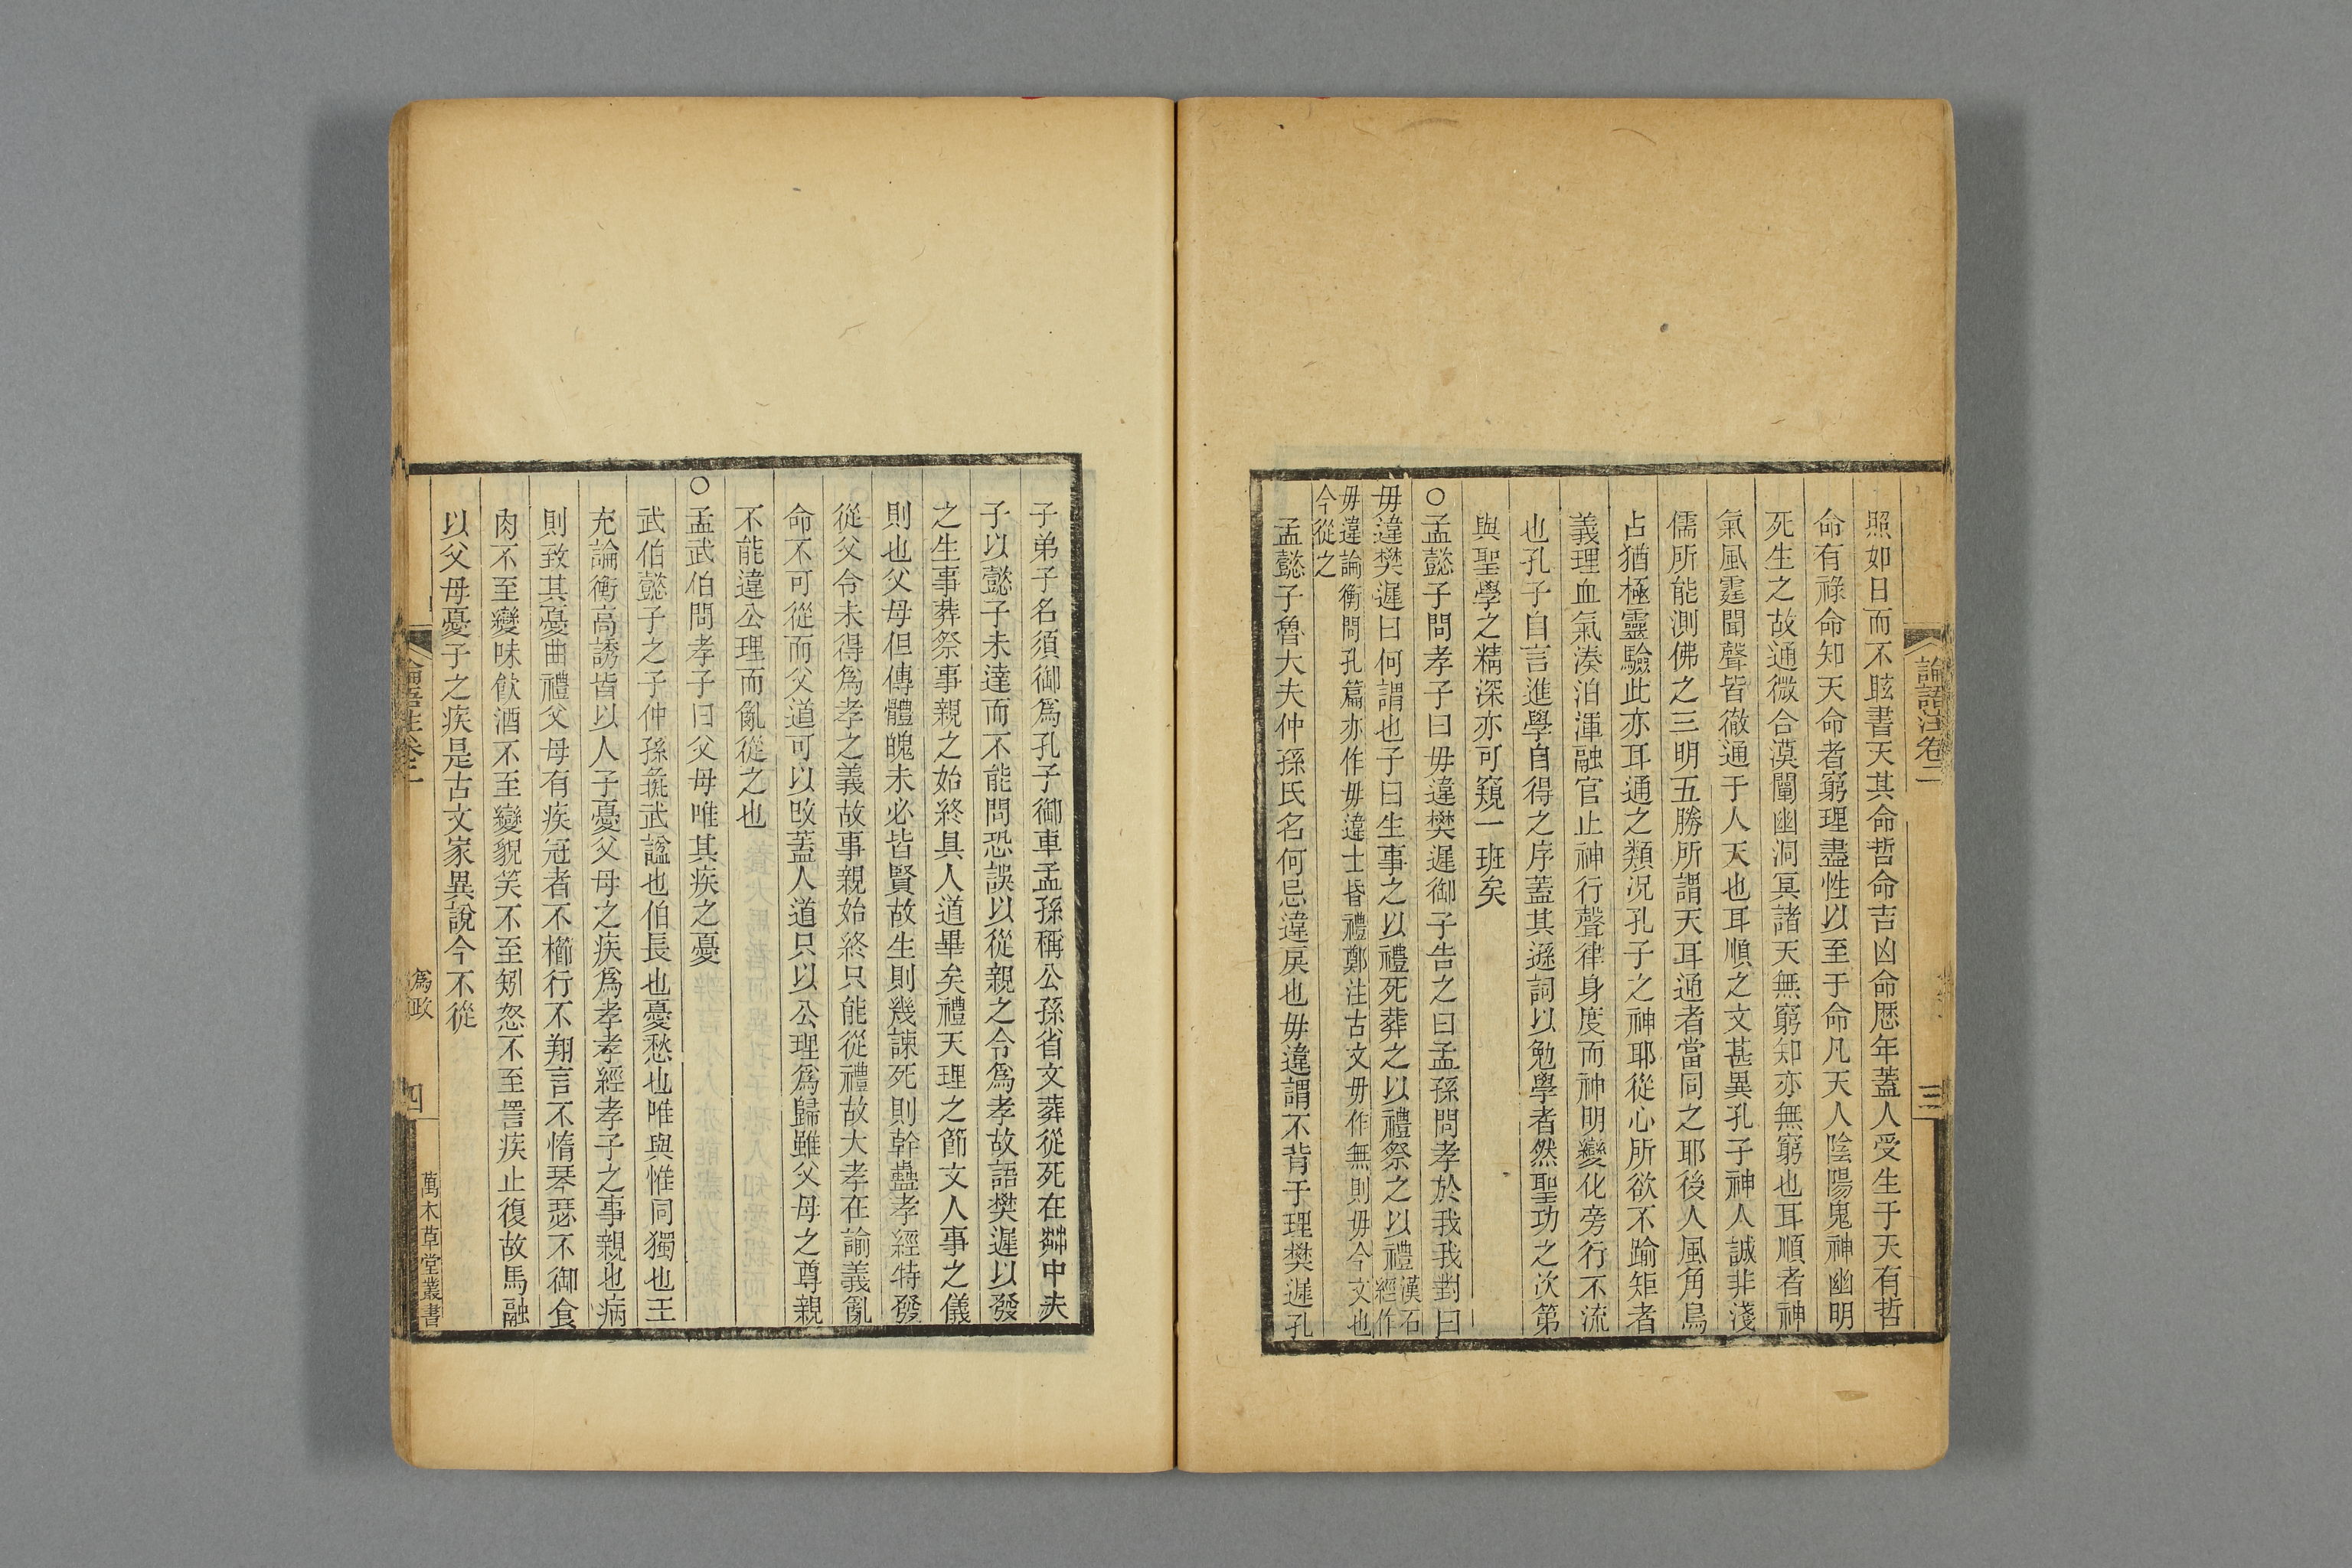 論語注卷二
三
照如日而不眩書天其命哲命吉凶命歷年蓋人受生于天有哲
命有祿命知天命者窮理盡性以至于命凡天人陰陽鬼神幽明
死生之故通微合漠闡幽洞冥諸天無窮知亦無窮也耳順者神
氣風霆聞聲皆徹通于人天也耳順之文甚異孔子神人誠非淺
儒所能測佛之三明五勝所謂天耳通者當同之耶後人風角鳥
占猶極靈驗此亦耳通之類況孔子之神耶從心所欲不踰矩者
義理血氣湊泊渾融官止神行聲律身度而神明變化旁行不流
也孔子自言進學自得之序蓋其遜詞以勉學者然聖功之次第
與聖學之精深亦可窺一班矣
○孟懿子問孝子曰毋違樊遲御子告之曰孟孫問孝於我我對曰
毋違樊遲曰何謂也子曰生事之以禮死葬之以禮祭之以禮漢石經作
毋違論衡問孔篇亦作毋違士昏禮鄭注古文毋作無則毋今文也
今從之
孟懿子魯大夫仲孫氏名何忌違戾也毋違謂不背于理樊遲孔
子弟子名須御爲孔子御車孟孫稱公孫省文葬從死在茻中夫
子以懿子未達而不能問恐誤以從親之令爲孝故語樊遲以發
之生事葬祭事親之始終具人道畢矣禮天理之節文人事之儀
則也父母但傳體魄未必皆賢故生則幾諫死則幹蠱孝經特發
從父令未得爲孝之義故事親始終只能從禮故大孝在諭義亂
命不可從而父道可以改蓋人道只以公理爲歸雖父母之尊親
不能違公理而亂從之也
○孟武伯問孝子曰父母唯其疾之憂
武伯懿子之子仲孫彘武諡也伯長也憂愁也唯與惟同獨也王
充論衡高誘皆以人子憂父母之疾爲孝孝經孝子之事親也病
則致其憂曲禮父母有疾冠者不櫛行不翔言不惰琴瑟不御食
肉不至變味飲酒不至變貌笑不至矧怒不至詈疾止復故馬融
以父母憂子之疾是古文家異說今不從
論語注卷二
爲政
四
萬木草堂叢書